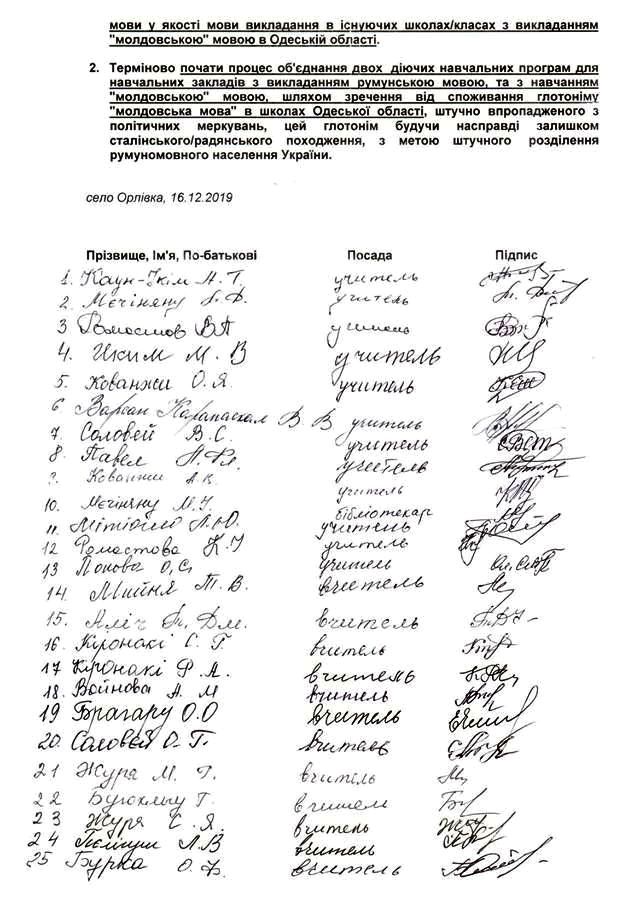 мови у якості мови викладання в існуючих школах/класах з викладанням
"молдовською" мовою в Одеській області.
2. Терміново почати процес об'єднання двох діючих навчальних програм для
навчальних закладів з викладанням румунською мовою, та з навчанням
"молдовською" мовою, шляхом зречення від споживання глотоніму
"молдовська мова" в школах Одеської області, штучно впропадженого з
політичних меркувань, цей глотонім будучи насправді залишком
сталінського/радянського походження, з метою штучного розділення
румуномовного населення України.
село Орлівка, 16.12.2019
Прізвище, Ім'я, По-батькові Посада Підпис
1. Каун-Ікім А. Т. учитель
2. учитель
3 В А учитель
4. Иким М. В учитель
5. Кованжи О. Я. учитель
6 Варбан В В учитель
7. Соловей В. С. учитель
8. Павел учитель
9. Кованжи А. К. учитель
10. Мечіняну М. І. бібліотекар
11. учитель
12 Ромастова К. І учитель
13 Попова О, С, учитель
14. Т. В. вчитель
15. Дм. вчитель
16. Кіронакі С. Г. вчитель
17 Кіронакі Ф А. вчитель
18. Войнова А. М вчитель
19 Брагару О. О вчитель
20. Соловей О. Г. вчитель
21 Жура М. Г. вчитель
22 Г. вчитель
23 Журя С. Я. вчитель
24 Л. В вчитель
25 Бурка О. Ф. вчитель